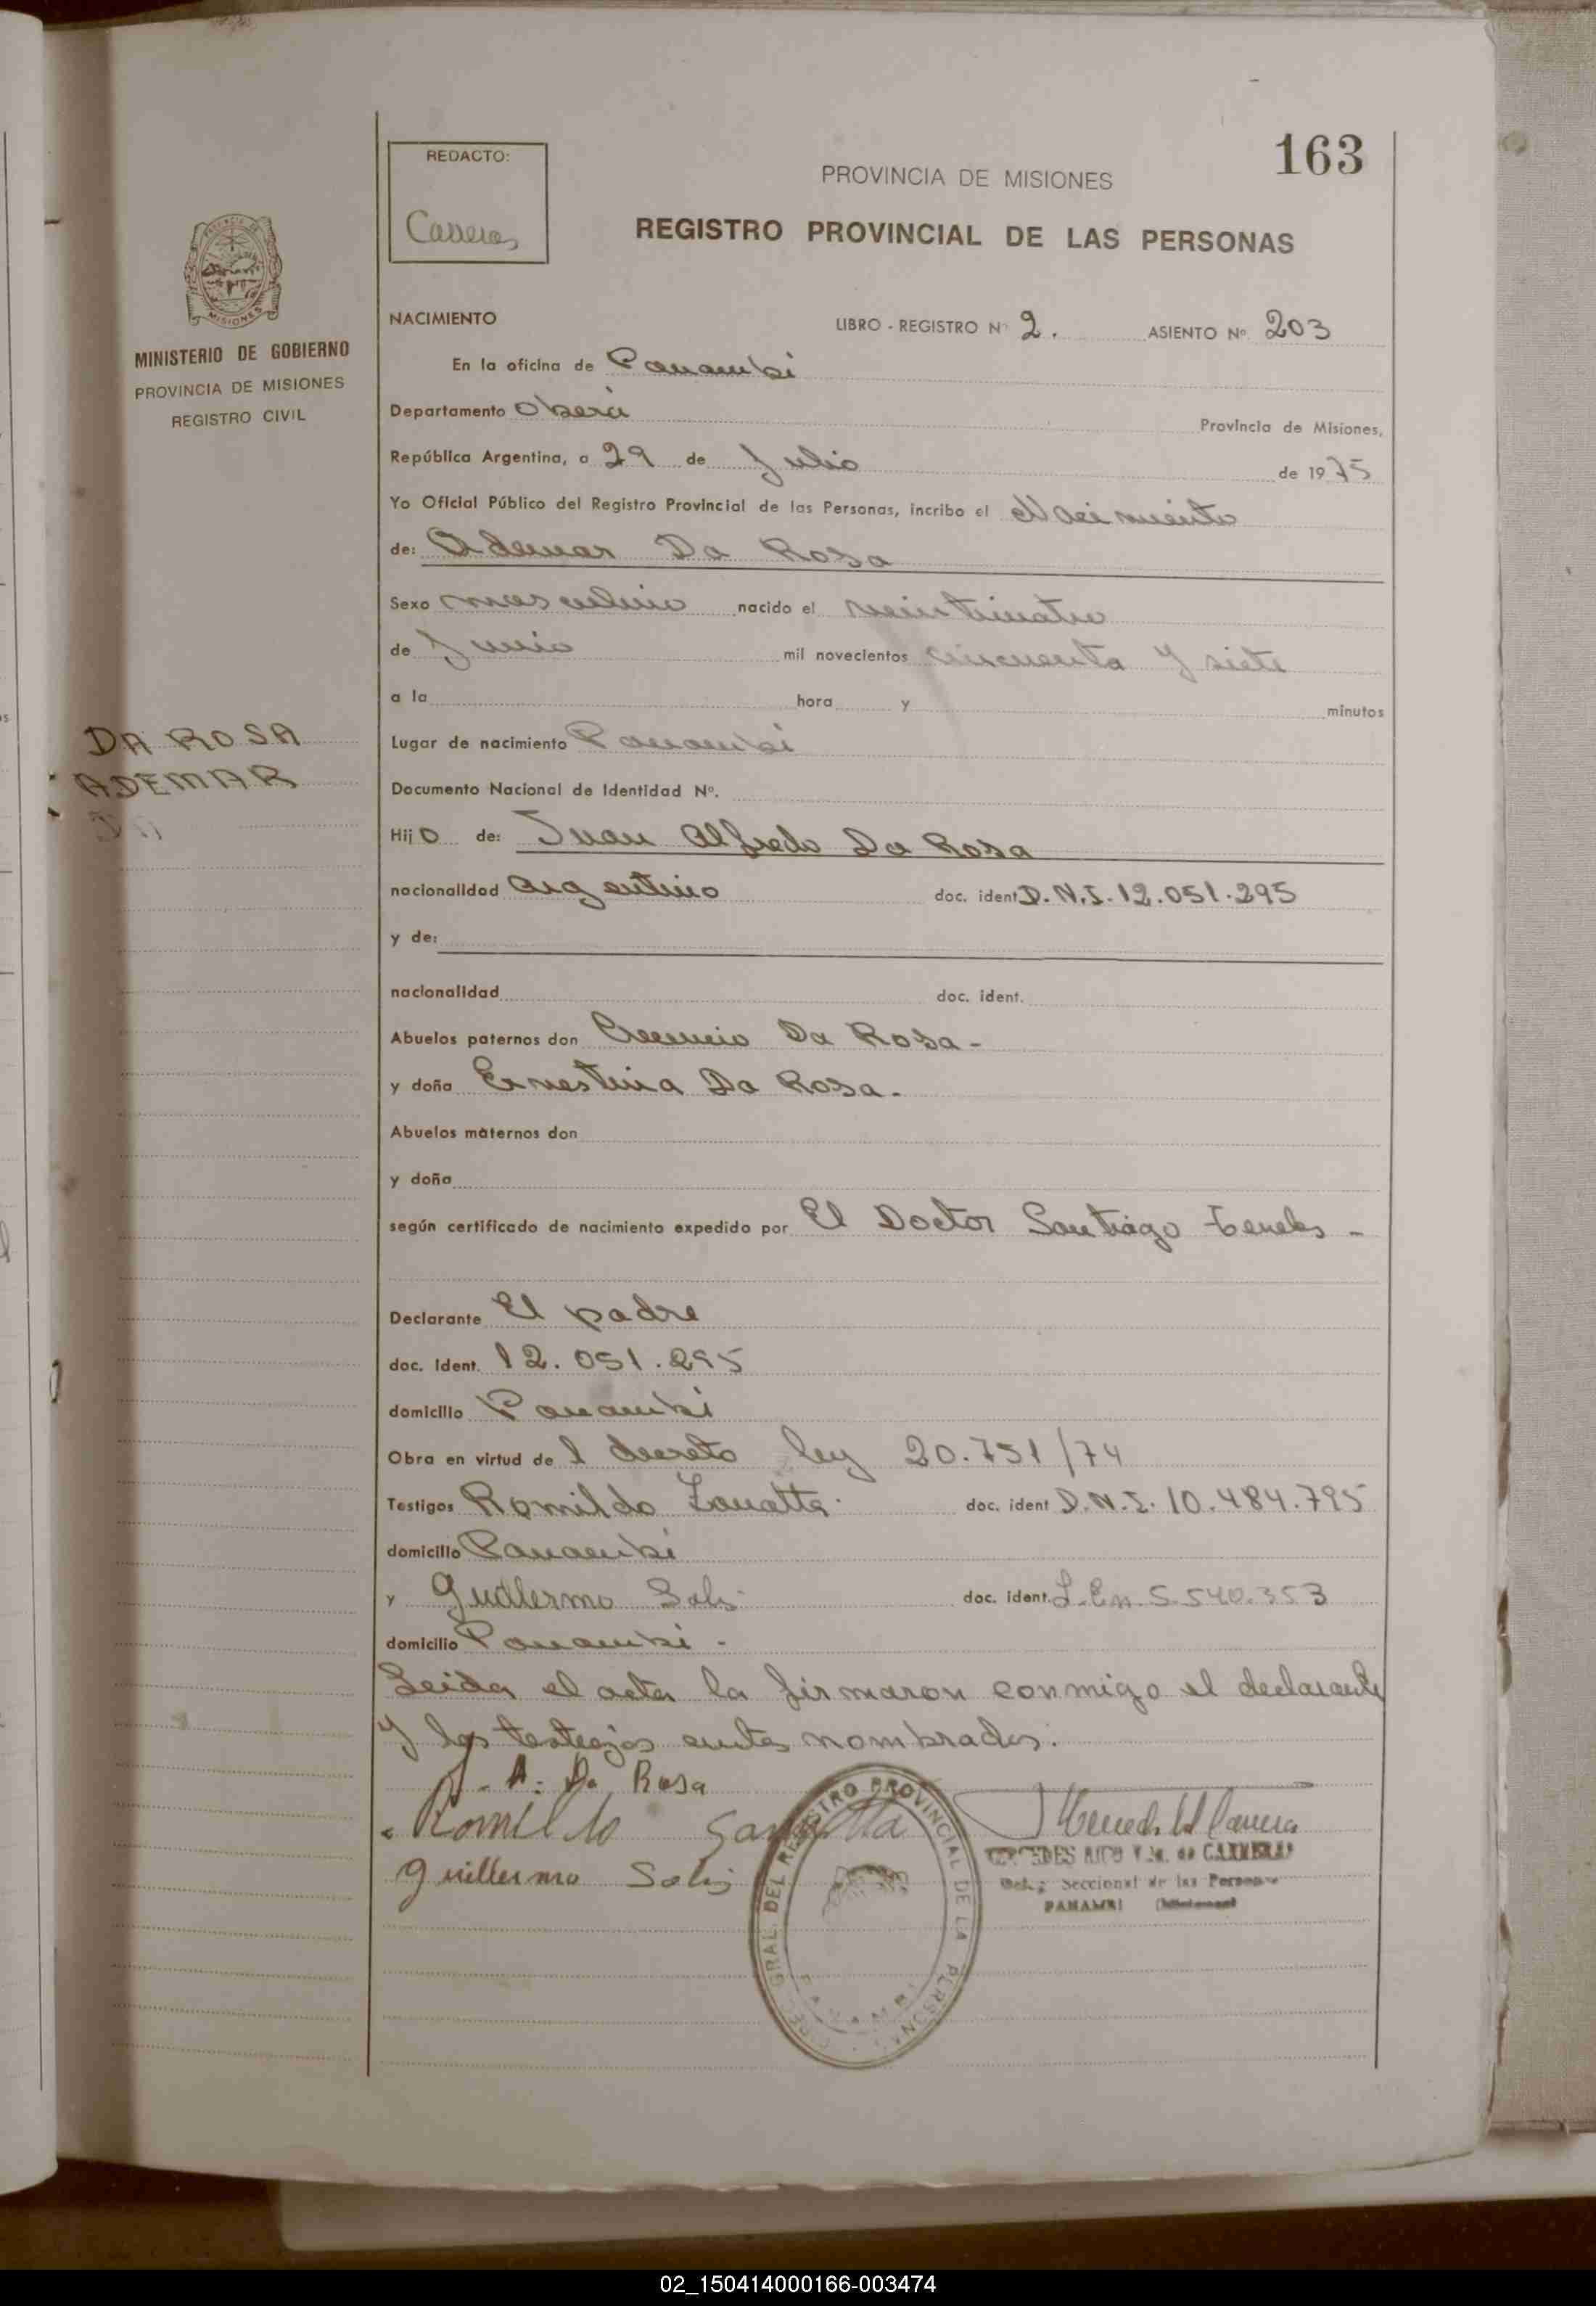 163
REDACTO:
Carreras
PROVINCIA DE MISIONES
REGISTRO PROVINCIAL DE LAS PERSONAS
PROVINCIA DE
MISIONES
MINISTERIO DE GOBIERNO
PROVINCIA DE MISIONES
REGISTRO CIVIL
NACIMIENTO LIBRO - REGISTRO Nº 2. ASIENTO Nº 203
En la oficina de Panambi
Departamento Oberá Provincia de Misiones,
República Argentina, a 29 de Julio de 1975
Yo Oficial Público del Registro Provincial de las Personas, incribo el Nacimiento
de: Ademar Da Rosa
Sexo masculino nacido el veinticuatro
de Junio mil novecientos cincuenta y siete
a la hora y minutos
DA ROSA
ADEMAR
Lugar de nacimiento Panambi
Documento Nacional de Identidad Nº.
Hijo de: Juan Alfredo Da Rosa
nacionalidad argentino doc. ident D.N.I. 12.051.295
y de:
nacionalidad doc. ident.
Abuelos paternos don Da Rosa -
y doña Ernestina Da Rosa -
Abuelos maternos don
y doña
según certificado de nacimiento expedido por El Doctor Santiago -
Declarante El padre
doc. ident. 12.051.295
domicilio Panambi
Obra en virtud de l decreto ley 20.751/74
Testigos Romildo Zanatta doc. ident D.N.I. 10.484.795
domicilio Panambi
y Guillermo Solis doc. ident. L.En. 5.540.353
domicilio Panambi -
Leida el acta la firmaron conmigo el declarante
y los testigos antes nombrados.
A. Da Rosa
Romildo
Guillermo Solis
DES RICO V DA. de CARRERAS
Seccional de las Personas
PANAMBI (Misiones)
DIREC. GRAL. DEL REGISTRO PROVINCIAL DE LA PERSONAS
PANAMBI
02_150414000166-003474